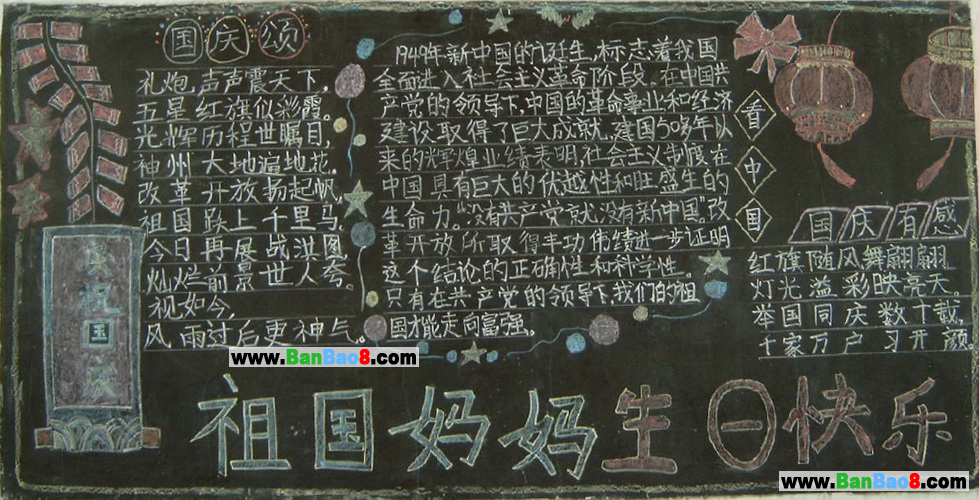 国庆颂
礼炮声声震天下,
五星红旗似彩霞。
光辉历程世瞩目,
神州大地遍地花。
改革开放扬起帆,
祖国跃上千里马
今日再展战淇图,
灿烂前景世人夸
视如今,
风雨过后更神气。
1949年新中国的诞生,标志着我国
全面进入社会主义革命阶段,在中国共
产党的领导下,中国的革命事业和经济
建设取得了巨大成就。建国50多年以
来的辉煌业绩表明,社会主义制度在
中国具有巨大的优越性和旺盛生的
生命力。"没有共产党就没有新中国",改
革开放所取得丰功伟绩进一步证明
这个结论的正确性和科学性。
只有在共产党的领导下,我们的祖
国才能走向富强。
看中国
国庆有感
红旗随风舞翩翩
灯光溢彩映亮天,
举国同庆数十载,
千家万户习开颜
庆祝国
祖国妈妈生日快乐
www.BanBao8.com
www.BanBao8.com